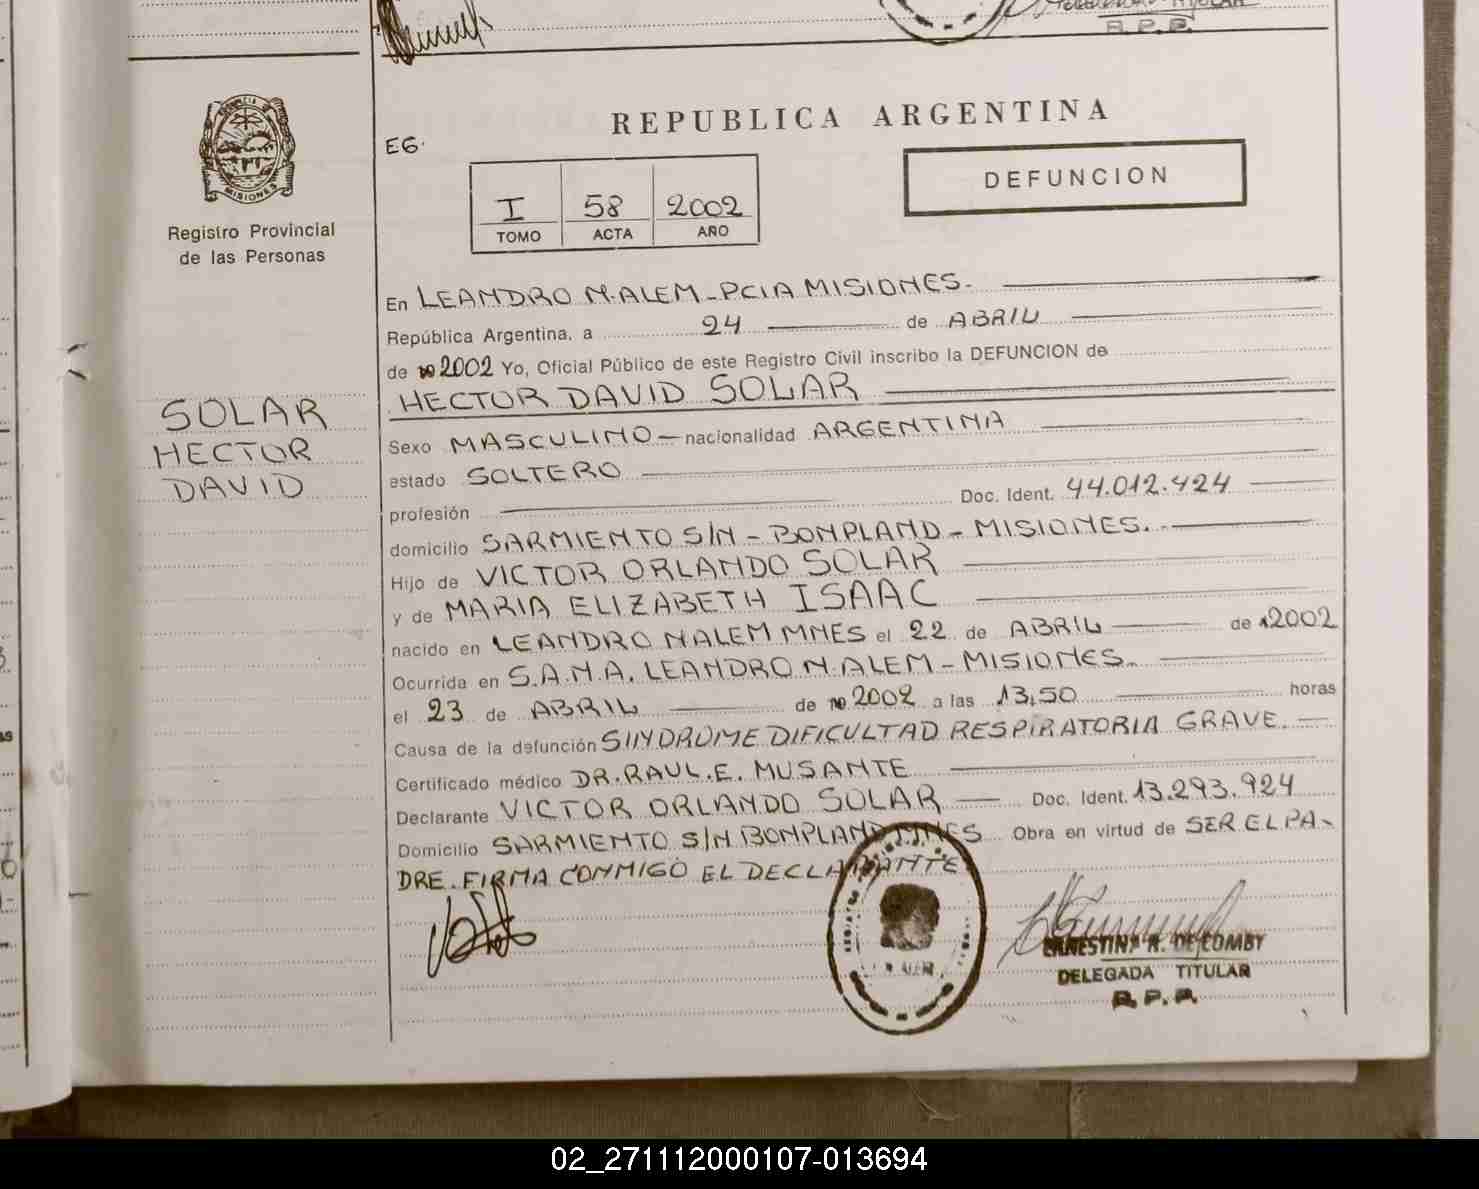 R.P.P.
PROVINCIA DE
MISIONES
Registro Provincial
de las Personas
SOLAR
HECTOR
DAVID
REPUBLICA ARGENTINA
E6.
I 58 2002
TOMO ACTA AÑO
DEFUNCION
En LEANDRO N. ALEM - PCIA MISIONES.
República Argentina, a 24 de ABRIL
de 2002 Yo, Oficial Público de este Registro Civil inscribo la DEFUNCION de
HECTOR DAVID SOLAR
Sexo MASCULINO - nacionalidad ARGENTINA
estado SOLTERO
profesión Doc. Ident. 44.012.424
domicilio SARMIENTO S/N - BONPLAND - MISIONES.
Hijo de VICTOR ORLANDO SOLAR
y de MARIA ELIZABETH ISAAC
nacido en LEANDRO N ALEM MNES el 22 de ABRIL de 2002
Ocurrida en S.A.M.A. LEANDRO N. ALEM - MISIONES.
el 23 de ABRIL de 2002 a las 13,50 horas
Causa de la defunción SINDROME DIFICULTAD RESPIRATORIA GRAVE.
Certificado médico DR. RAUL. E. MUSANTE
Declarante VICTOR ORLANDO SOLAR Doc. Ident. 13.293.924
Domicilio SARMIENTO S/N BONPLAND MNES Obra en virtud de SER EL PA-
DRE. FIRMA CONMIGO EL DECLARANTE
ERNESTINA R. DE COMBY
DELEGADA TITULAR
R.P.P.
02_271112000107-013694